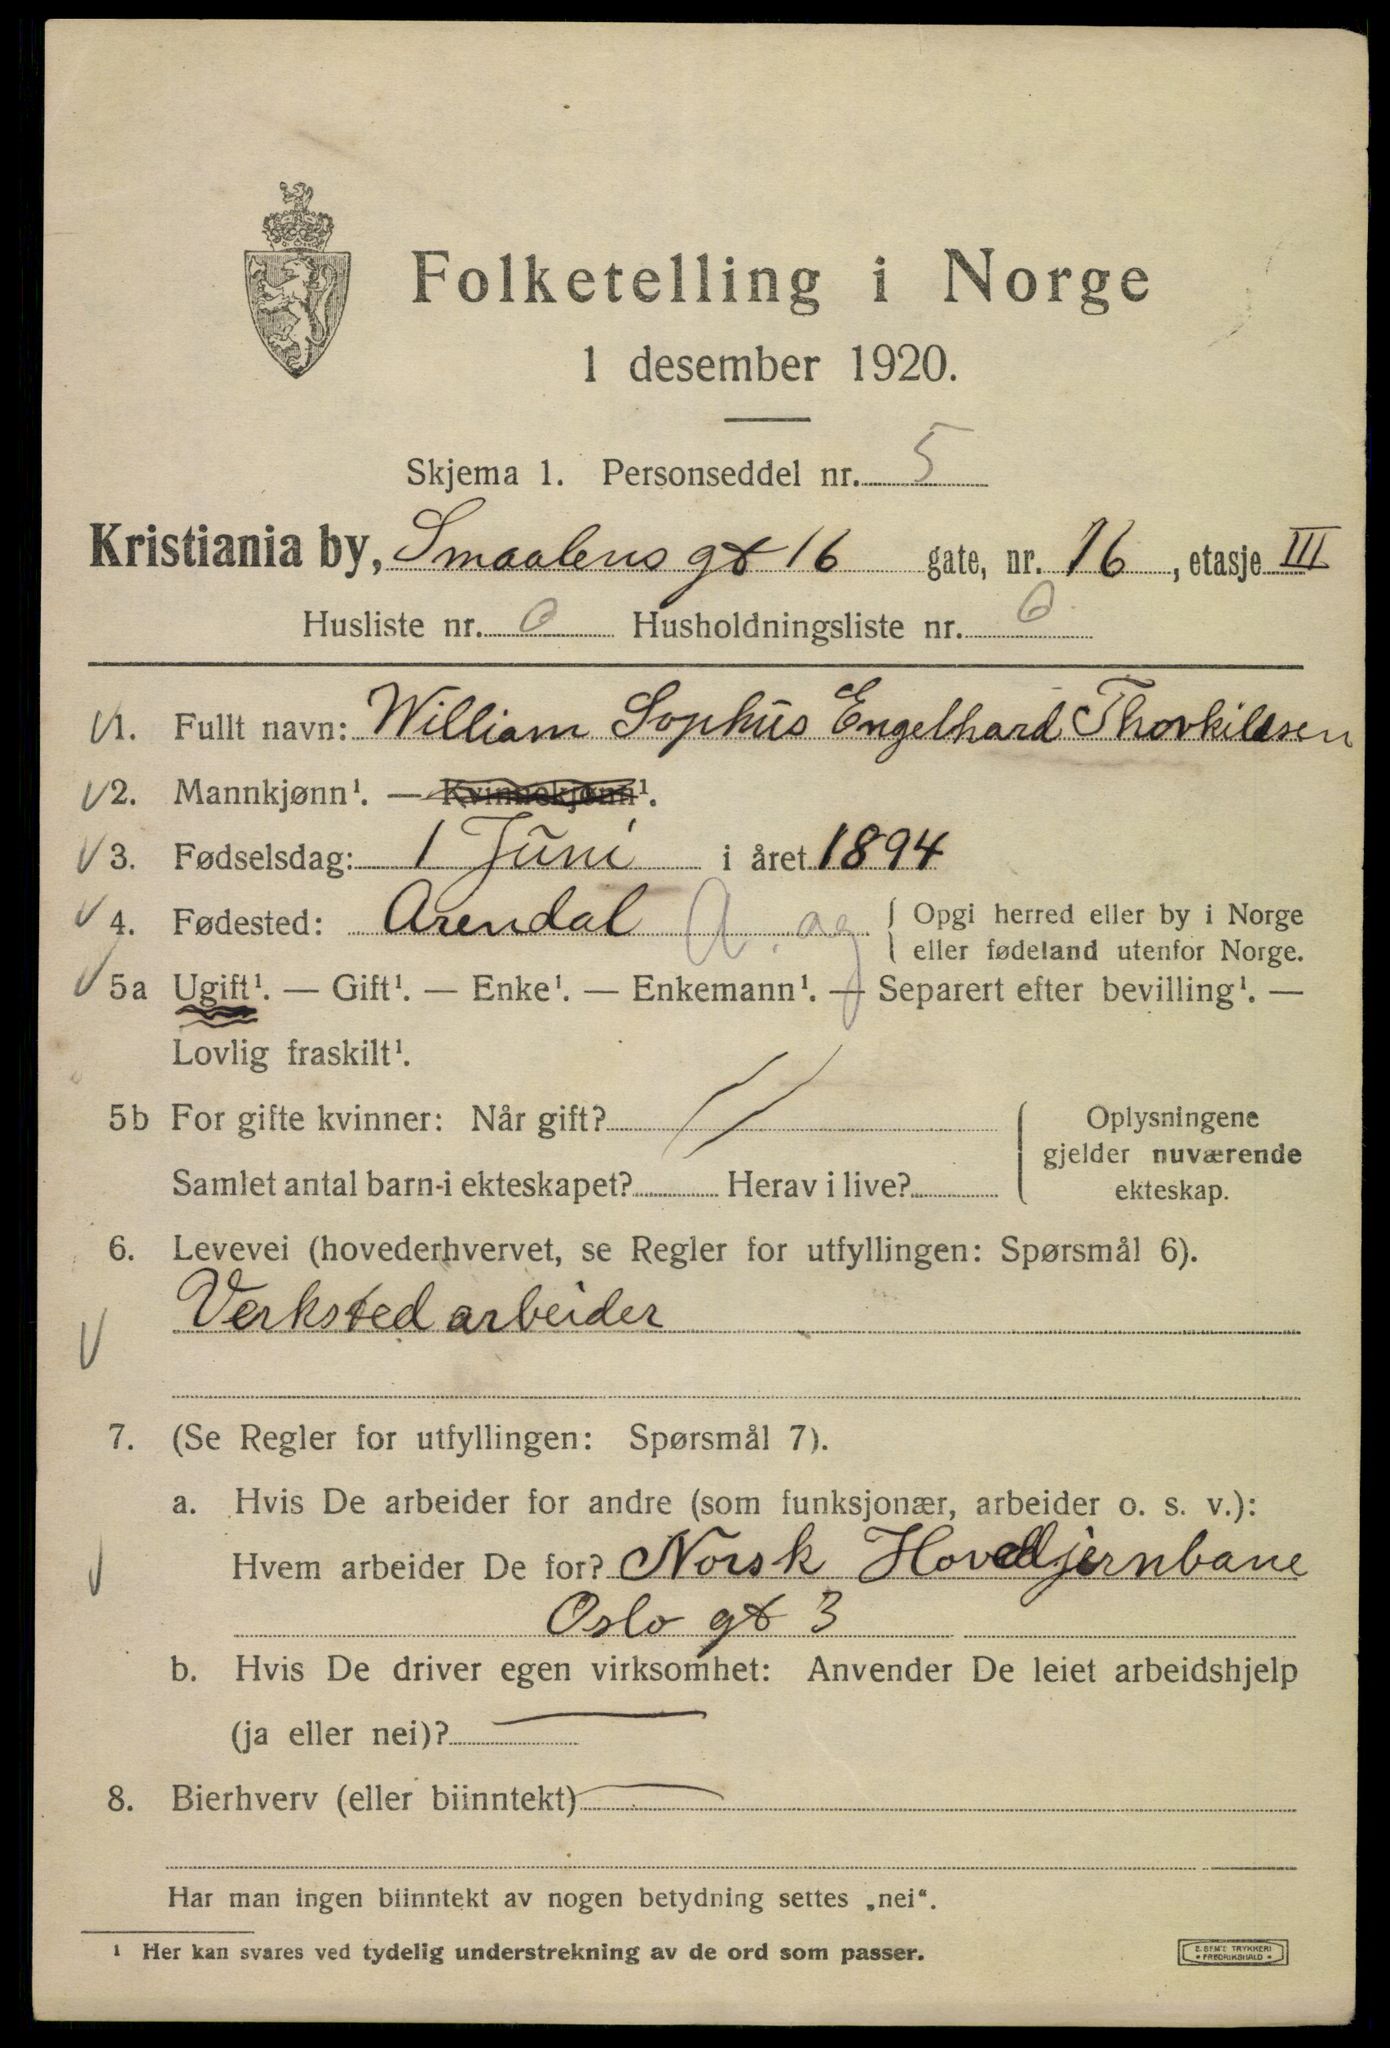 Folketelling i Norge
1 desember 1920.
Skjema 1. Personseddel nr. 5
Kristiania by, Smaalens gt 16 gate, nr. 16, etasje III
Husliste nr. 6 Husholdningsliste nr. 6
1. Fullt navn: William Sophus Engelhard Thorkildsen
2. Mannkjønn¹. — Kvinnekjønn¹.
3. Fødselsdag: 1 Juni i året 1894
4. Fødested: Arendal A. ag { Opgi herred eller by i Norge
eller fødeland utenfor Norge.
5a Ugift¹. — Gift¹. — Enke¹. — Enkemann¹. — Separert efter bevilling¹. —
Lovlig fraskilt¹.
5b For gifte kvinner: Når gift?
Samlet antal barn i ekteskapet? Herav i live?
Oplysningene
gjelder nuværende
ekteskap.
6. Levevei (hovederhvervet, se Regler for utfyllingen: Spørsmål 6).
Verksted arbeider
7. (Se Regler for utfyllingen: Spørsmål 7).
a. Hvis De arbeider for andre (som funksjonær, arbeider o. s. v.):
Hvem arbeider De for? Norsk Hovedjernbane
Oslo gt 3
b. Hvis De driver egen virksomhet: Anvender De leiet arbeidshjelp
(ja eller nei)? —
8. Bierhverv (eller biinntekt) —
Har man ingen biinntekt av nogen betydning settes „nei“.
¹ Her kan svares ved tydelig understrekning av de ord som passer.
E. SEM'S TRYKKERI
FREDRIKSHALD